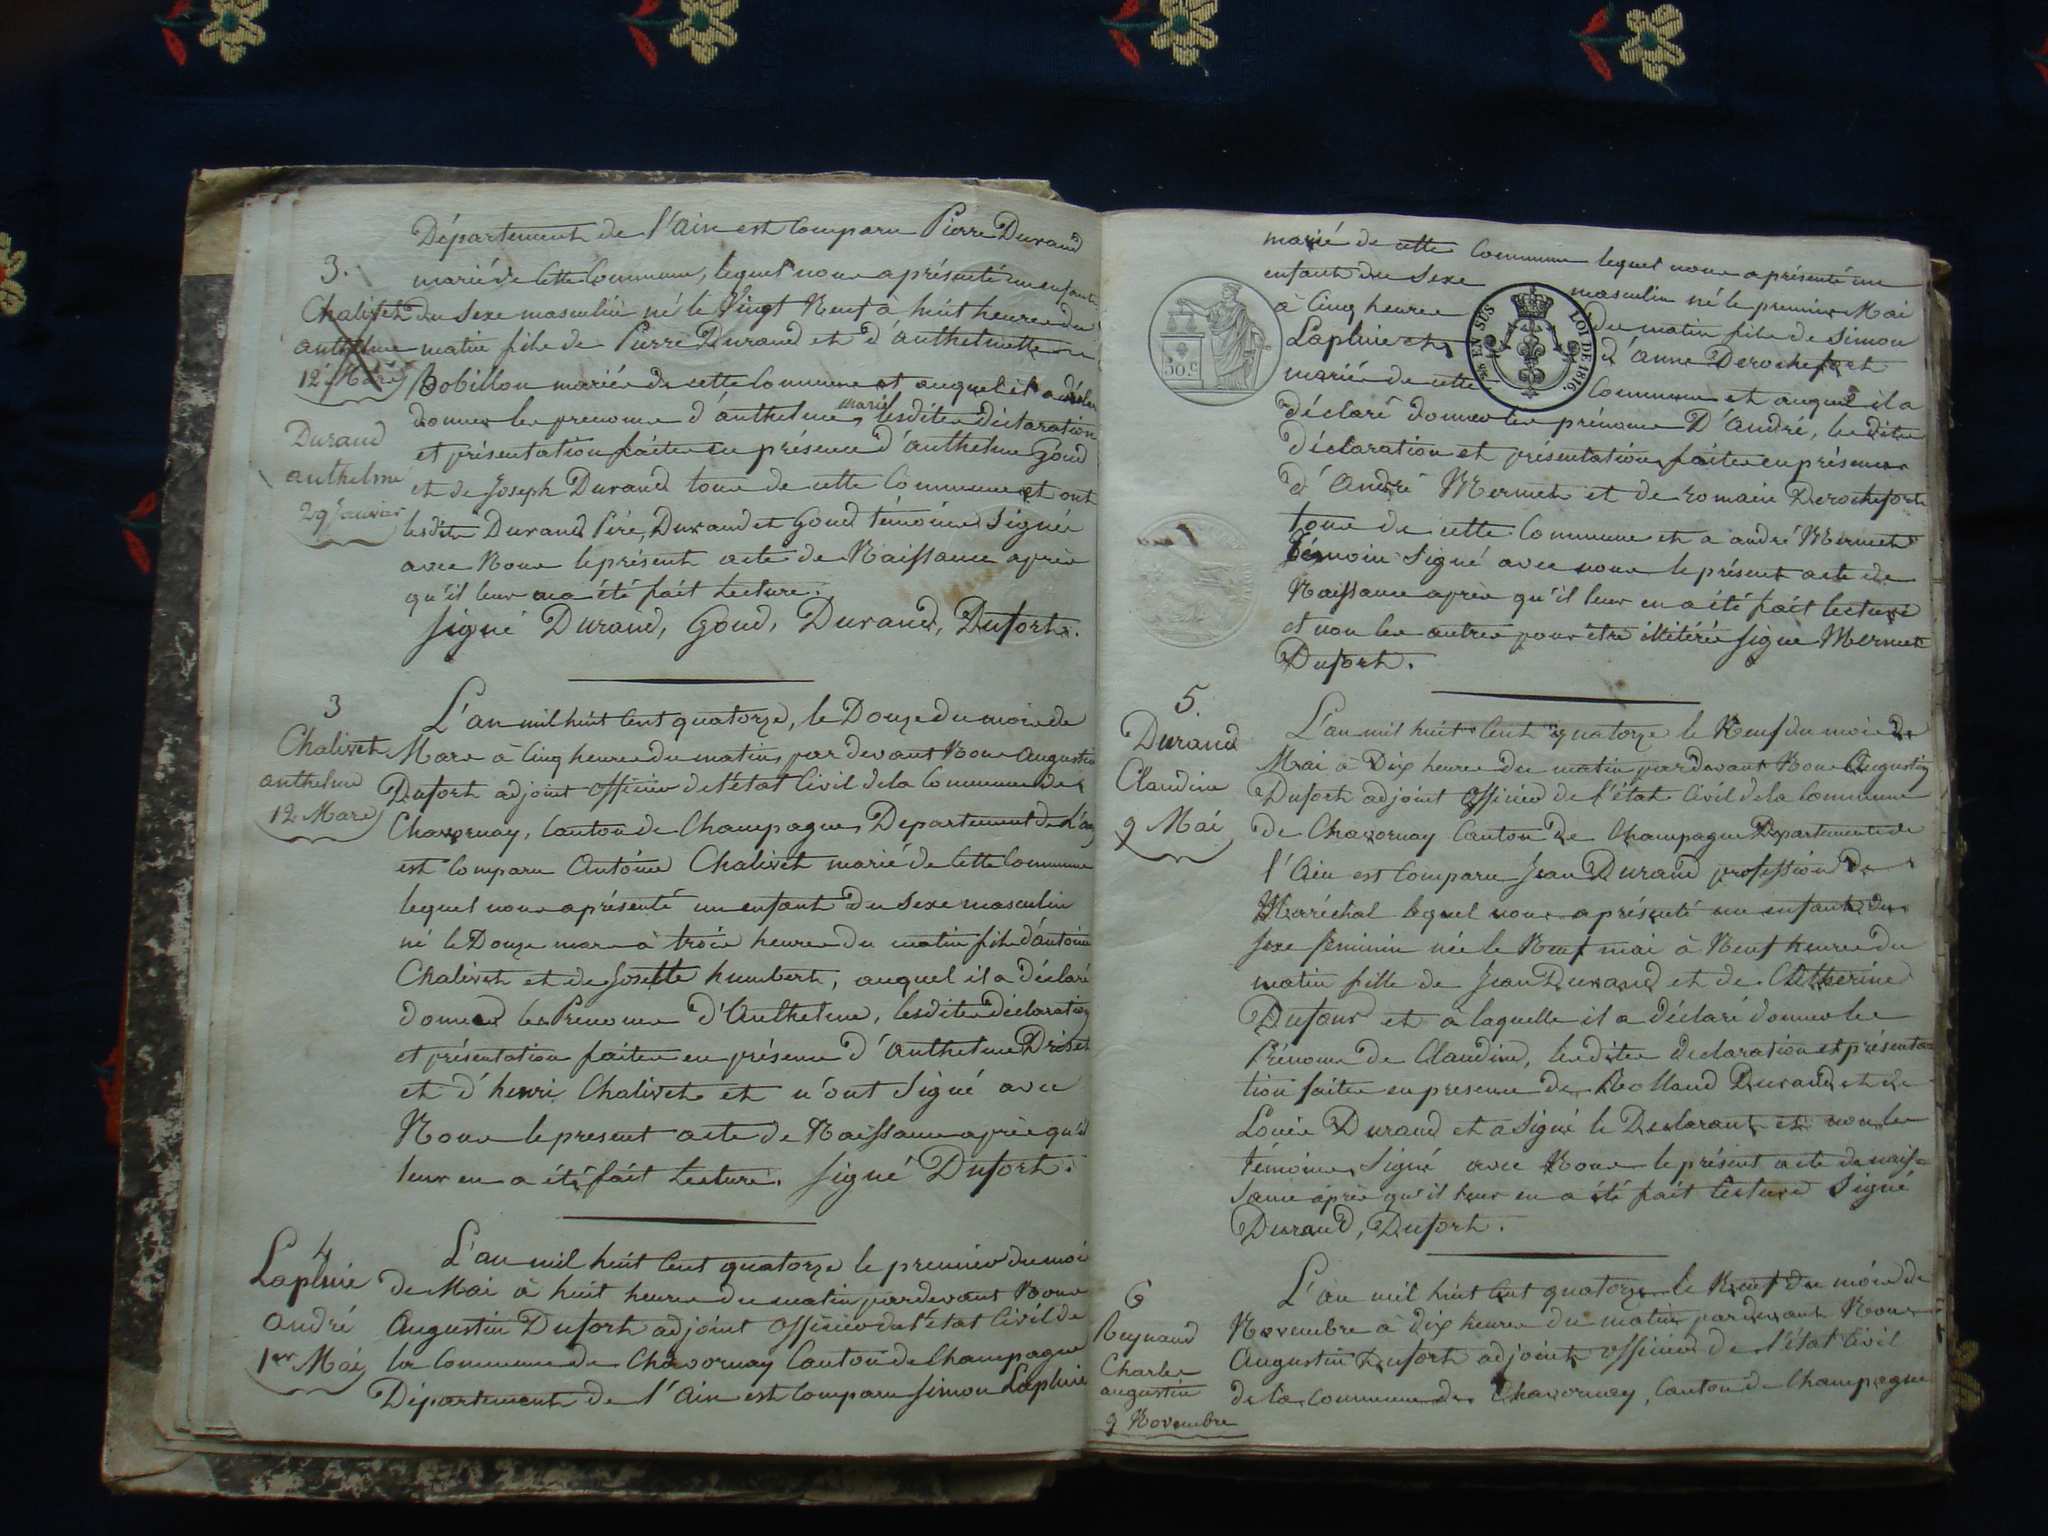 Département de l'Ain est Comparu Pierre Durand
3.
marié de Cette Commune, lequel nous a présenté un enfant
Chalivet du Sexe masculin né le Vingt Neuf à huit heures du
anthelme matin fils de Pierre Durand et d'anthelmette
12 Mars Bobillon mariés de cette Commune et auquel il a déclaré
donner les prenoms d'anthelme marie, lesdites déclaration
Durand
et présentation faites en présence d'anthelme Goud
anthelme
et de Joseph Durand tous de cette Commune et ont
29 Janvier
lesdits Durand Père, Durand et Goud témoins Signés
avec Nous le présent acte de Naissance après
qu'il leur en a été fait Lecture.
signé Durand, Goud, Durand, Dufort.
3
L'an mil huit Cent quatorze, le Douze du mois de
Chalivet Mars à Cinq heures du matin, par devant Nous Augustin
anthelme Dufort adjoint officier de l'état Civil de la Commune de
12 Mars Chavornay, Canton de Champagne, Departement de l'ain
est Comparu Antoine Chalivet marié de Cette Commune
lequel nous a présenté un enfant du Sexe masculin
né le Douze mars à trois heures du matin fils d'antoine
Chalivet et de Josette humbert, auquel il a déclaré
donner les Prenoms d'Anthelme, lesdites déclaration
et présentation faites en présence d'anthelme Drovet
et d'henri Chalivet et n'ont Signé avec
Nous le present acte de Naissance après qu'il
leur en a été fait Lecture. signé Dufort.
4
L'an mil huit Cent quatorze le premier du mois
Laplnie de Mai à huit heures du matin par devant Nous
andré Augustin Dufort adjoint officier de l'état Civil de
1er Mai la Commune de Chavornay Canton de Champagne
Département de l'Ain est Comparu Simon
marié de cette Commune lequel nous a présenté un
enfant du Sexe masculin né le premier Mai
à Cinq heures du matin fils de Simon
et d'anne Derochefort
mariés de cette Commune et auquel il a
déclaré donner les prénoms D'André, lesdites
déclaration et présentation faites en présence
d'André Mermet et de romain Derochefort
tous de cette Commune et a andré Mermet
témoin Signé avec nous le présent acte de
Naissance après qu'il leur en a été fait lecture
et non les autres pour être illitérés signé Mermet
Dufort.
50.c
EN SUS
LOI DE 1816.
5.
L'an mil huit Cent quatorze le Neuf du mois de
Durand Mai à Dix heures du matin par devant Nous Augustin
Claudine Dufort adjoint officier de l'état Civil de la Commune
9 Mai de Chavornay Canton de Champagne Departement de
l'Ain est Comparu Jean Durand profession de
Maréchal lequel nous a présenté un enfant du
sexe féminin née le Neuf mai à Neuf heures du
matin fille de Jean Durand et de Catherine
Dufour et à laquelle il a déclaré donner les
Prénoms de Claudine, lesdites declaration et présenta
tion faites en presence de Rolland Durand et de
Louis Durand et a Signé le Declarant et non les
témoins, Signé avec Nous le présent acte de nais=
sance après qu'il leur en a été fait lecture Signé
Durand, Dufort.
6
L'an mil huit Cent quatorze le Neuf du mois de
Reynaud Novembre à dix heures du matin par devant Nous
Charles Augustin Dufort adjoint officier de l'état Civil
augustin de la Commune de Chavornay, Canton de Champagne
9 Novembre